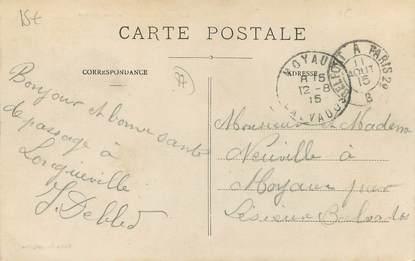 15t
CARTE POSTALE
CORRESPONDANCE
ADRESSE
37
MOYAUX
8 15
12-8
15
CALVADOS
A PARIS
11
AOUT
15
8
Bonjour et bonne santé
de passage à
Longueville
Monsieur et Madame
Neuville à
Moyaux par
Lisieux Calvados